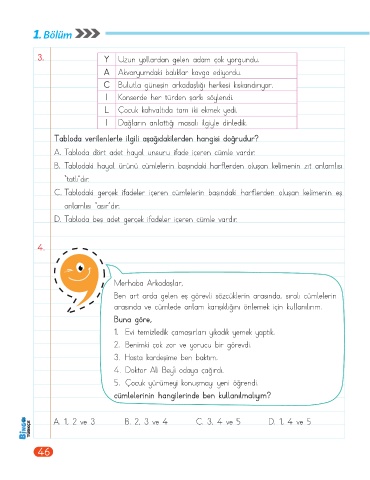 1. Bölüm
3.
Y Uzun yollardan gelen adam çok yorgundu.
A Akvaryumdaki balıklar kavga ediyordu.
C Bulutla güneşin arkadaşlığı herkesi kıskandırıyor.
I Konserde her türden şarkı söylendi.
L Çocuk kahvaltıda tam iki ekmek yedi.
I Dağların anlattığı masalı ilgiyle dinledik.
Tabloda verilenlerle ilgili aşağıdakilerden hangisi doğrudur?
A. Tabloda dört adet hayal unsuru ifade içeren cümle vardır.
B. Tablodaki hayal ürünü cümlelerin başındaki harflerden oluşan kelimenin zıt anlamlısı
"tatlı"dır.
C. Tablodaki gerçek ifadeler içeren cümlelerin başındaki harflerden oluşan kelimenin eş
anlamlısı "asır"dır.
D. Tabloda beş adet gerçek ifadeler içeren cümle vardır.
4.
Merhaba Arkadaşlar,
Ben art arda gelen eş görevli sözcüklerin arasında, sıralı cümlelerin
arasında ve cümlede anlam karışıklığını önlemek için kullanılırım.
Buna göre,
1. Evi temizledik çamaşırları yıkadık yemek yaptık.
2. Benimki çok zor ve yorucu bir görevdi.
3. Hasta kardeşime ben baktım.
4. Doktor Ali Bey'i odaya çağırdı.
5. Çocuk yürümeyi konuşmayı yeni öğrendi.
cümlelerinin hangilerinde ben kullanılmalıyım?
A. 1, 2 ve 3 B. 2, 3 ve 4 C. 3, 4 ve 5 D. 1, 4 ve 5
BinGO
TÜRKÇE
46